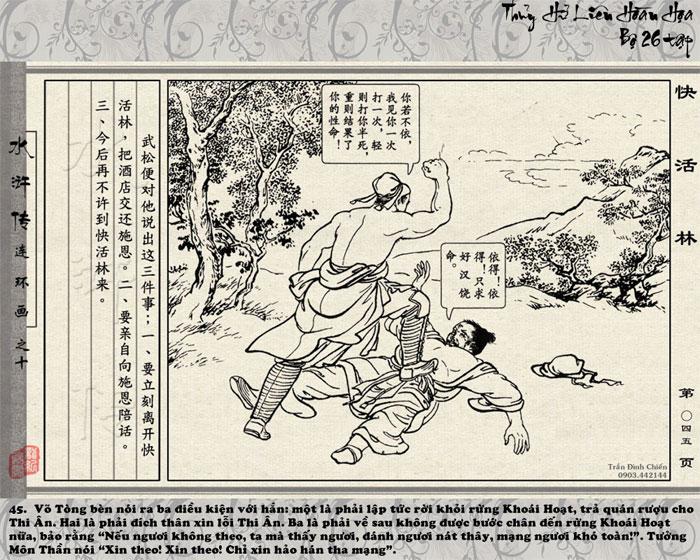 Thủy Hử Liên Hoàn Họa
Bộ 26 tập
快活林
第〇四五页
你若不依，
我见你一次
打一次，轻
则打你半死，
重则结果了
你的性命！
依得！依
得！只求
好汉饶
命。
武松便对他说出这三件事；一、要立刻离开快
活林，把酒店交还施恩。二、要亲自向施恩陪话。
三、今后再不许到快活林来。
水浒传连环画之十
Trần Đình Chiến
0903.442144
45. Võ Tòng bèn nói ra ba điều kiện với hắn: một là phải lập tức rời khỏi rừng Khoái Hoạt, trả quán rượu cho
Thi Ân. Hai là phải đích thân xin lỗi Thi Ân. Ba là phải về sau không được bước chân đến rừng Khoái Hoạt
nữa, bảo rằng “Nếu ngươi không theo, ta mà thấy ngươi, đánh ngươi nát thây, mạng ngươi khó toàn!”. Tưởng
Môn Thần nói “Xin theo! Xin theo! Chỉ xin hảo hán tha mạng”.